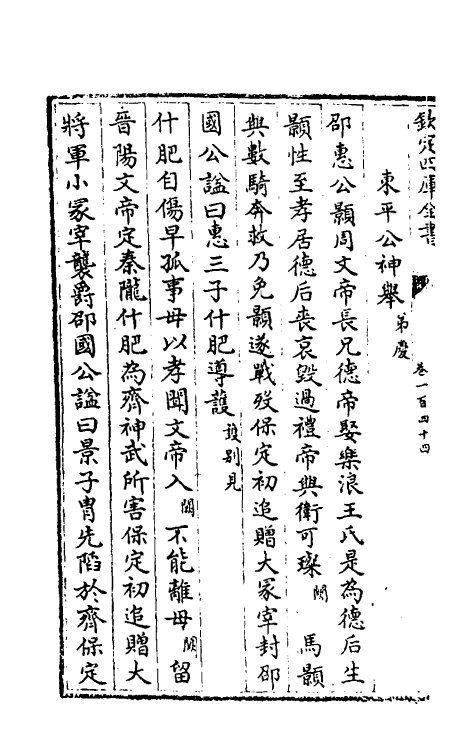 欽定四庫全書
卷一百四十四
東平公神舉弟慶
邵惠公顥周文帝長兄德帝娶樂浪王氏是為德后生
顥性至孝居德后喪哀毀過禮帝與衛可瓌闕馬顥
與數騎奔救乃免顥遂戰歿保定初追贈大冢宰封邵
國公諡曰惠三子什肥導護護别見
什肥自傷早孤事母以孝聞文帝入闕不能離母闕留
晉陽文帝定秦隴什肥為齊神武所害保定初追贈大
將軍小冢宰襲爵邵國公諡曰景子胄先陷於齊保定